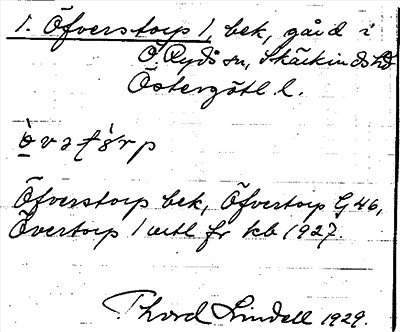 1. Öfverstorp 1 bek, gård i
Ö. Ryds sn, Skärkinds hd
Östergötl. l.
Öfverstorp bek, Öfvertorp G 46,
Övertorp 1 utl fr kb 1927.
Thord Lindell 1929.